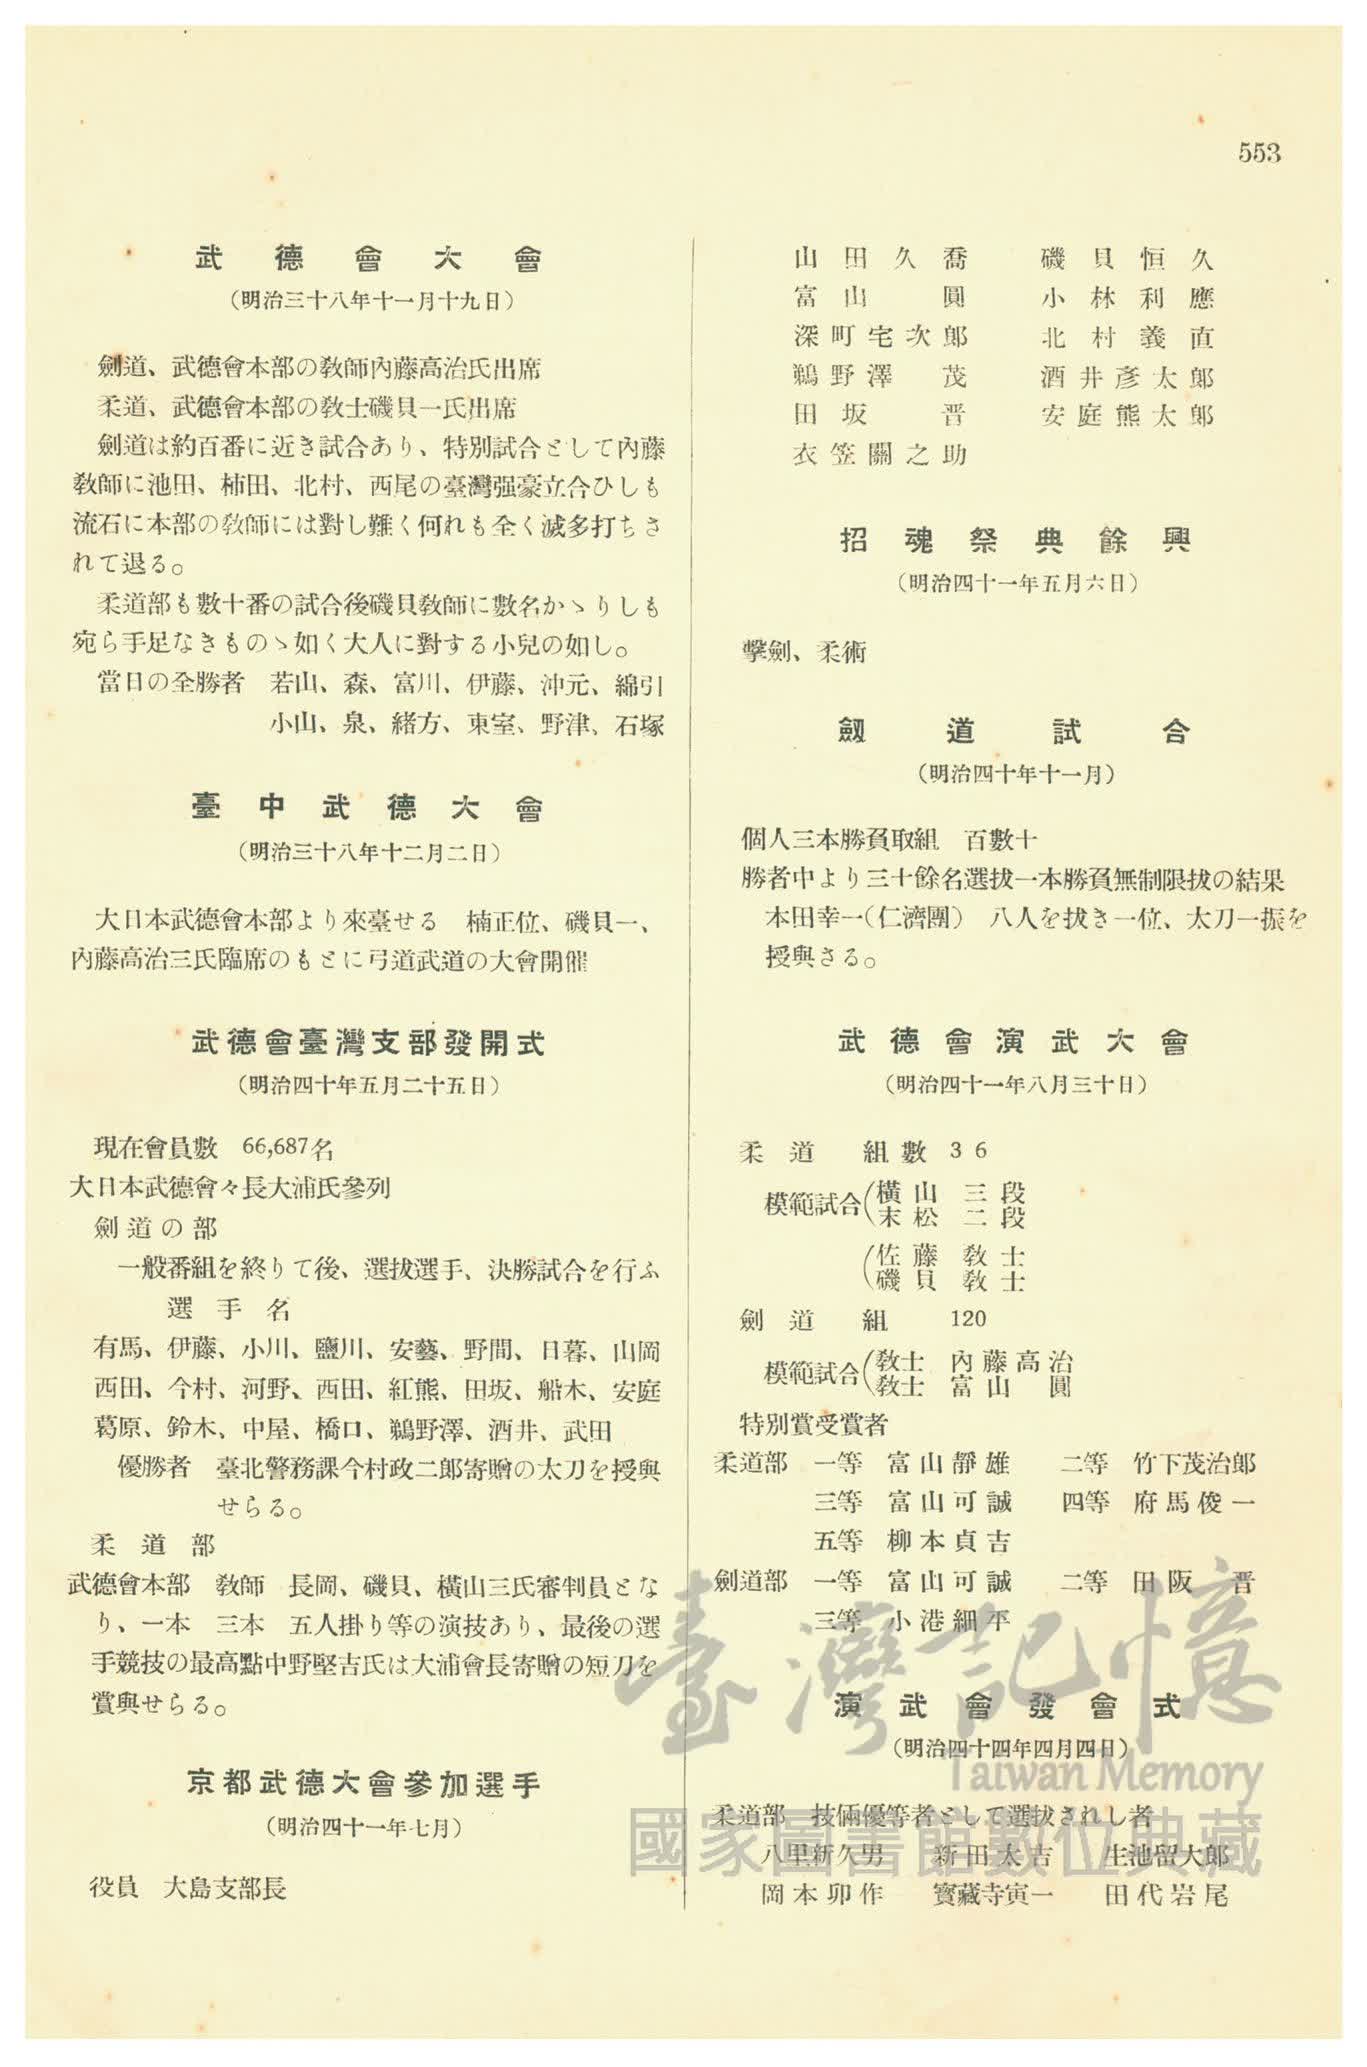 553
武德會大會
（明治三十八年十一月十九日）
劍道、武德會本部の敎師內藤高治氏出席
柔道、武德會本部の敎士磯貝一氏出席
劍道は約百番に近き試合あり、特別試合として內藤
敎師に池田、柿田、北村、西尾の臺灣强豪立合ひしも
流石に本部の敎師には對し難く何れも全く滅多打ちさ
れて退る。
柔道部も數十番の試合後磯貝敎師に數名かゝりしも
宛ら手足なきものゝ如く大人に對する小兒の如し。
當日の全勝者　若山、森、富川、伊藤、沖元、綿引
小山、泉、緒方、東室、野津、石塚
臺中武德大會
（明治三十八年十二月二日）
大日本武德會本部より來臺せる　楠正位、磯貝一、
內藤高治三氏臨席のもとに弓道武道の大會開催
武德會臺灣支部發開式
（明治四十年五月二十五日）
現在會員數　66,687名
大日本武德會々長大浦氏參列
劍道の部
一般番組を終りて後、選拔選手、決勝試合を行ふ
選手名
有馬、伊藤、小川、鹽川、安藝、野間、日暮、山岡
西田、今村、河野、西田、紅熊、田坂、船木、安庭
葛原、鈴木、中屋、橋口、鵜野澤、酒井、武田
優勝者　臺北警務課今村政二郎寄贈の太刀を授與
せらる。
柔道部
武德會本部　敎師　長岡、磯貝、橫山三氏審判員とな
り、一本　三本　五人掛り等の演技あり、最後の選
手競技の最高點中野堅吉氏は大浦會長寄贈の短刀を
賞與せらる。
京都武德大會參加選手
（明治四十一年七月）
役員　大島支部長
山田久喬　磯貝恒久
富山圓　小林利應
深町宅次郞　北村義直
鵜野澤茂　酒井彥太郞
田坂晋　安庭熊太郞
衣笠關之助
招魂祭典餘興
（明治四十一年五月六日）
擊劍、柔術
劔道試合
（明治四十年十一月）
個人三本勝負取組　百數十
勝者中より三十餘名選拔一本勝負無制限拔の結果
本田幸一（仁濟團）　八人を拔き一位、太刀一振を
授與さる。
武德會演武大會
（明治四十一年八月三十日）
柔道　組數　36
模範試合（橫山　三段
末松　二段
（佐藤　敎士
磯貝　敎士
劍道　組　120
模範試合（敎士　內藤高治
敎士　富山　圓
特別賞受賞者
柔道部　一等　富山靜雄　二等　竹下茂治郞
三等　富山可誠　四等　府馬俊一
五等　柳本貞吉
劍道部　一等　富山可誠　二等　田阪　晋
三等　小港細平
演武會發會式
（明治四十四年四月四日）
柔道部　技倆優等者として選拔されし者
八里新久男　新田太吉　生池留大郞
岡本卯作　寶藏寺寅一　田代岩尾
臺灣記憶
Taiwan Memory
國家圖書館數位典藏